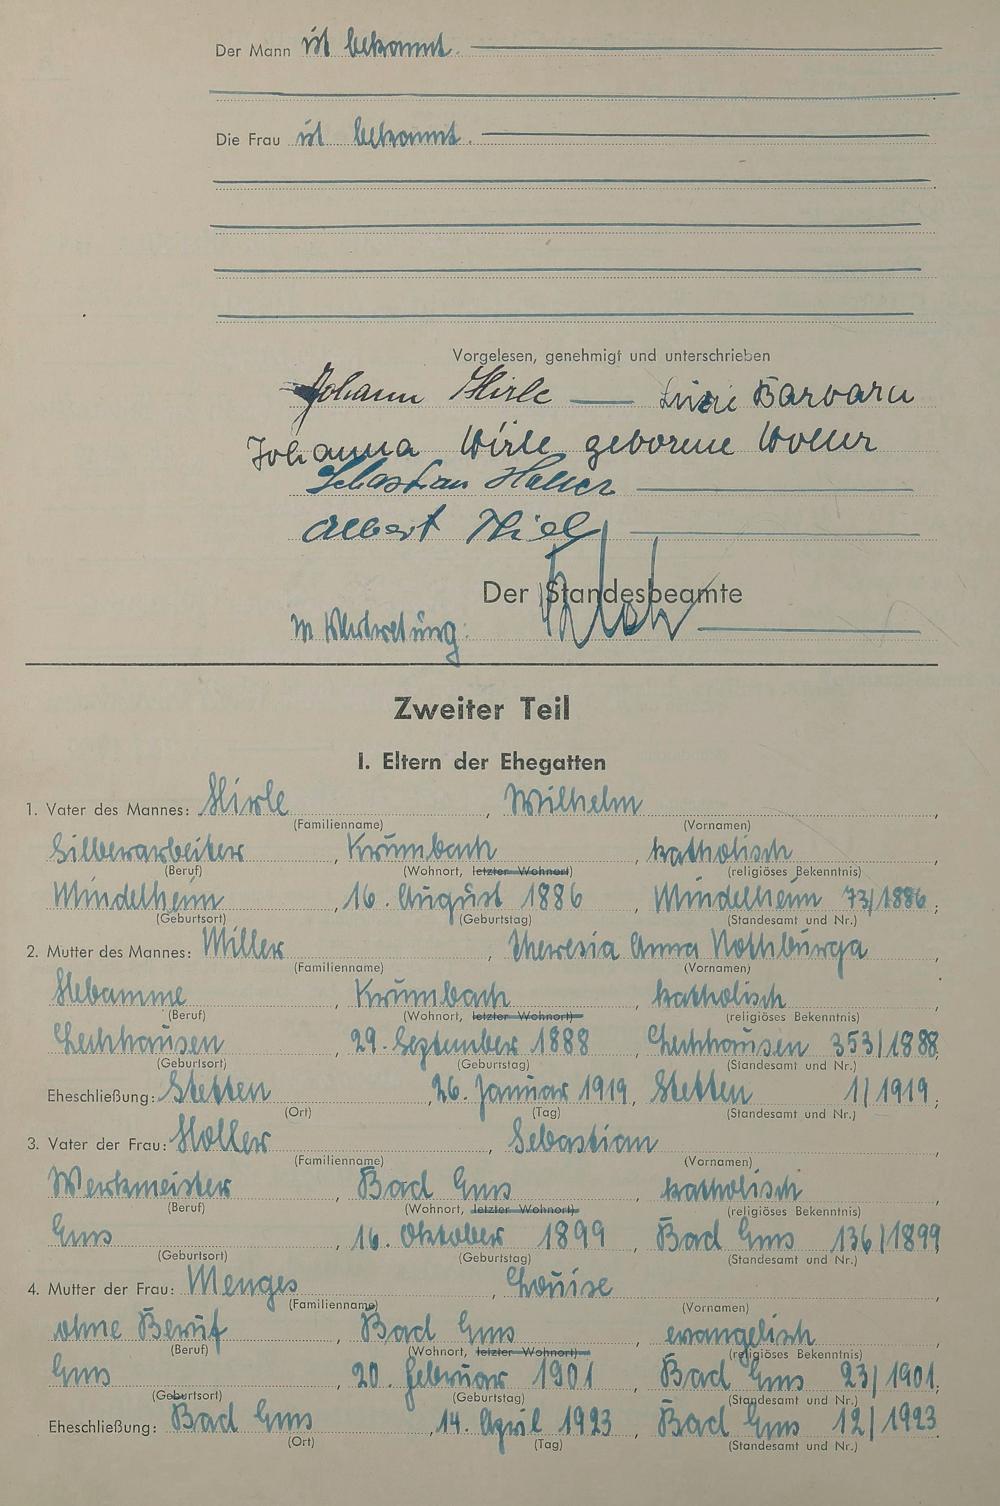 Der Mann ist bekannt.
Die Frau ist bekannt.
Vorgelesen, genehmigt und unterschrieben
Johann Hirle Luise Barbara
Johanna Hirle geborene Holler
Sebastian Holler
Albert Thiel
Der Standesbeamte
In Vertretung:
Zweiter Teil
I. Eltern der Ehegatten
1. Vater des Mannes: Hirle, Wilhelm,
(Familienname) (Vornamen)
Silberarbeiter, Krumbach, katholisch,
(Beruf) (Wohnort, letzter Wohnort) (religiöses Bekenntnis)
Mindelheim, 16. August 1886, Mindelheim 73/1886;
(Geburtsort) (Geburtstag) (Standesamt und Nr.)
2. Mutter des Mannes: Miller, Theresia Anna Nothburga,
(Familienname) (Vornamen)
Hebamme, Krumbach, katholisch,
(Beruf) (Wohnort, letzter Wohnort) (religiöses Bekenntnis)
Lechhausen, 29. September 1888, Lechhausen 353/1888;
(Geburtsort) (Geburtstag) (Standesamt und Nr.)
Eheschließung: Stetten, 26. Januar 1919, Stetten 1/1919;
(Ort) (Tag) (Standesamt und Nr.)
3. Vater der Frau: Holler, Sebastian,
(Familienname) (Vornamen)
Werkmeister, Bad Ems, katholisch,
(Beruf) (Wohnort, letzter Wohnort) (religiöses Bekenntnis)
Ems, 16. Oktober 1899, Bad Ems 136/1899
(Geburtsort) (Geburtstag) (Standesamt und Nr.)
4. Mutter der Frau: Menges, Louise,
(Familienname) (Vornamen)
ohne Beruf, Bad Ems, evangelisch,
(Beruf) (Wohnort, letzter Wohnort) (religiöses Bekenntnis)
Ems, 20. Februar 1901, Bad Ems 23/1901;
(Geburtsort) (Geburtstag) (Standesamt und Nr.)
Eheschließung: Bad Ems, 14. April 1923, Bad Ems 12/1923
(Ort) (Tag) (Standesamt und Nr.)